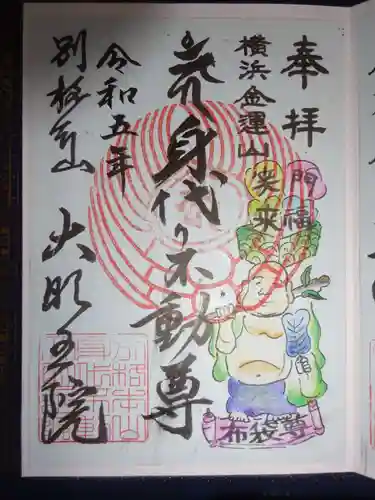 奉拝
横浜金運山
笑門来福
荒身代り不動尊
布袋尊
令和五年
別格本山 大明王院